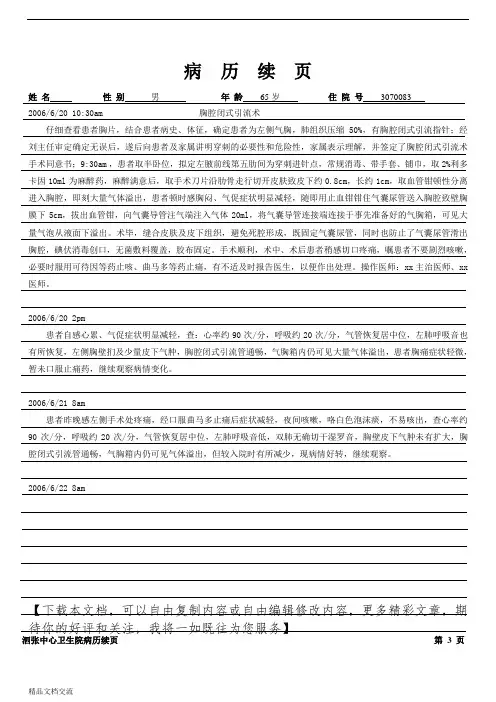 病 历 续 页
姓 名 性 别 男 年 龄 65 岁 住 院 号 3070083
2006/6/20 10:30am 胸腔闭式引流术
仔细查看患者胸片，结合患者病史、体征，确定患者为左侧气胸，肺组织压缩 50%，有胸腔闭式引流指针；经
刘主任审定确定无误后，遂后向患者及家属讲明穿刺的必要性和危险性，家属表示理解，并签定了胸腔闭式引流术
手术同意书；9:30am，患者取半卧位，拟定左腋前线第五肋间为穿刺进针点，常规消毒、带手套、铺巾，取 2%利多
卡因 10ml 为麻醉药，麻醉满意后，取手术刀片沿肋骨走行切开皮肤致皮下约 0.8cm，长约 1cm，取血管钳顿性分离
进入胸腔，即刻大量气体溢出，患者顿时感胸闷、气促症状明显减轻，随即用止血钳钳住气囊尿管送入胸腔致壁胸
膜下 5cm，拔出血管钳，向气囊导管注气端注入气体 20ml，将气囊导管连接端连接于事先准备好的气胸箱，可见大
量气泡从液面下溢出。术毕，缝合皮肤及皮下组织，避免死腔形成，既固定气囊尿管，同时也防止了气囊尿管滑出
胸腔，碘伏消毒创口，无菌敷料覆盖，胶布固定。手术顺利，术中、术后患者稍感切口疼痛，嘱患者不要剧烈咳嗽，
必要时服用可待因等药止咳、曲马多等药止痛，有不适及时报告医生，以便作出处理。操作医师：xx 主治医师、xx
医师。
2006/6/20 2pm
患者自感心累、气促症状明显减轻，查：心率约 90 次/分，呼吸约 20 次/分，气管恢复居中位，左肺呼吸音也
有所恢复，左侧胸壁扪及少量皮下气肿，胸腔闭式引流管通畅，气胸箱内仍可见大量气体溢出，患者胸痛症状轻微，
暂未口服止痛药，继续观察病情变化。
2006/6/21 8am
患者昨晚感左侧手术处疼痛，经口服曲马多止痛后症状减轻，夜间咳嗽，咯白色泡沫痰，不易咳出，查心率约
90 次/分，呼吸约 20 次/分，气管恢复居中位，左肺呼吸音低，双肺无确切干湿罗音，胸壁皮下气肿未有扩大，胸
腔闭式引流管通畅，气胸箱内仍可见气体溢出，但较入院时有所减少，现病情好转，继续观察。
2006/6/22 8am
【下载本文档，可以自由复制内容或自由编辑修改内容，更多精彩文章，期
待你的好评和关注，我将一如既往为您服务】
泗张中心卫生院病历续页 第 3 页
精品文档交流